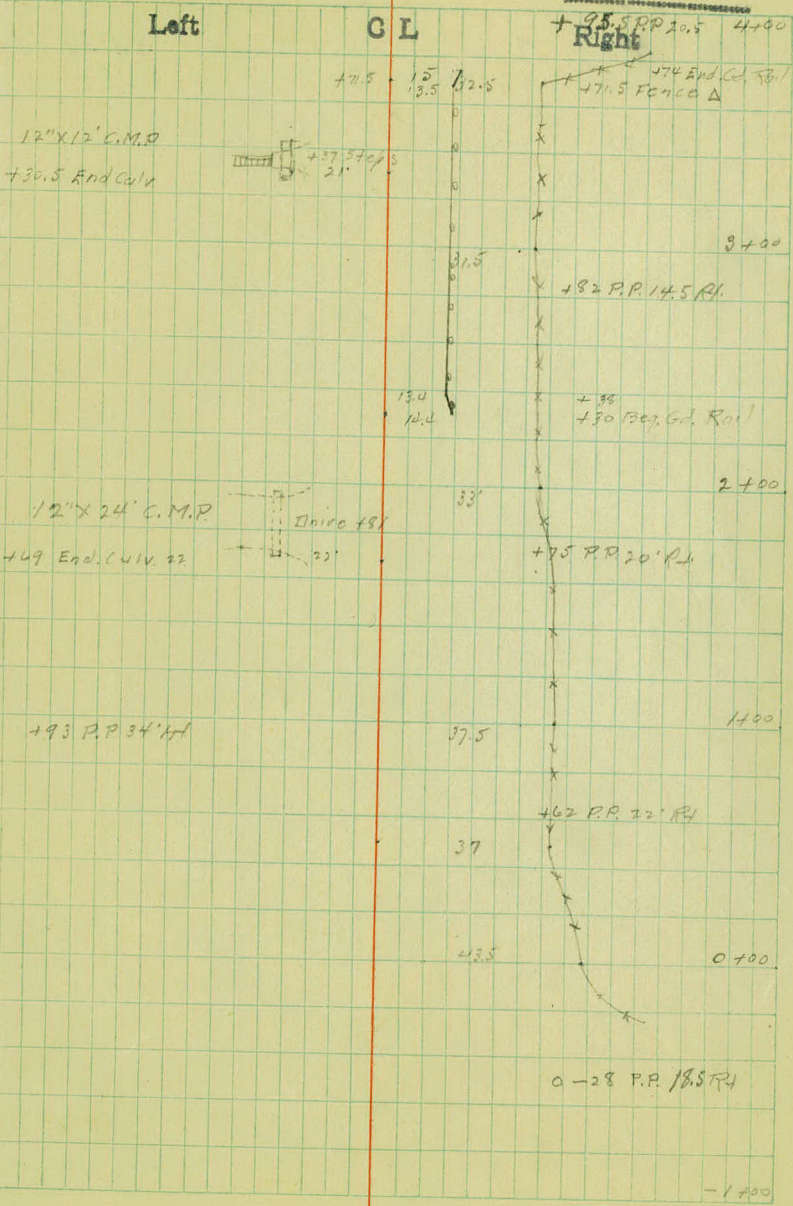 Left C L Right
+95.5 P.P 20.5 4+00
+71.5 15 32.5 +74 End Gd. Rail
13.5 +71.5 Fence Δ
12"X12' C.M.P
+37.5 Steps
+30.5 End Culv 21'
3+00
31.5
+82 P.P. 14.5 Rt.
13.4 +38
14.4 +30 Beg. Gd. Rail
2+00
33'
12"X 24' C.M.P. Drive +81
+69 End. Culv. 22 22' +75 P.P. 20' Rt.
1+00
+93 P.P 34' Lft 37.5
+62 P.P. 22' Rt
37
43.5 0+00
0-28 P.P. 18.5 Rt
-1+00